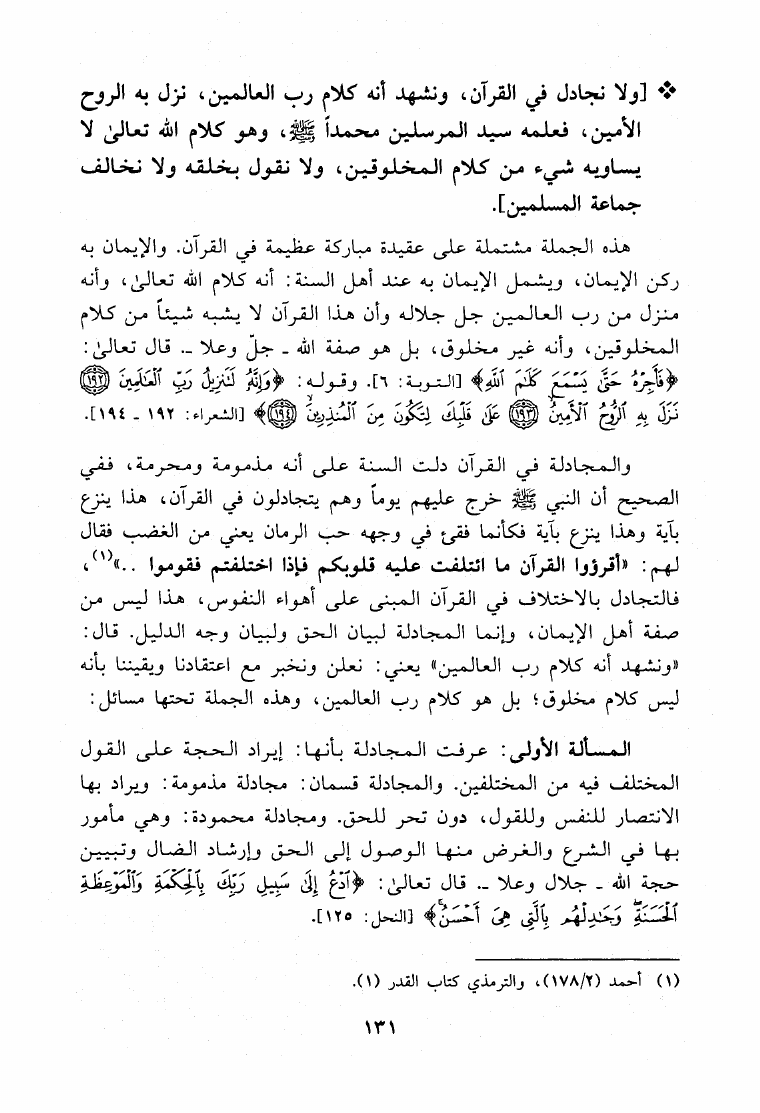 ❖ [ولا نجادل في القرآن، ونشهد أنه كلام رب العالمين، نزل به الروح
الأمين، فعلمه سيد المرسلين محمداً ﷺ، وهو كلام الله تعالىٰ لا
يساويه شيء من كلام المخلوقين، ولا نقول بخلقه ولا نخالف
جماعة المسلمين].
هذه الجملة مشتملة على عقيدة مباركة عظيمة في القرآن. والإيمان به
ركن الإيمان، ويشمل الإيمان به عند أهل السنة: أنه كلام الله تعالىٰ، وأنه
منزل من رب العالمين جل جلاله وأن هذا القرآن لا يشبه شيئاً من كلام
المخلوقين، وأنه غير مخلوق، بل هو صفة الله ـ جلّ وعلا ـ. قال تعالىٰ:
﴿فَأَجِرْهُ حَتَّىٰ يَسْمَعَ كَلَٰمَ ٱللَّهِ﴾ [التوبة: ٦]. وقوله: ﴿وَإِنَّهُۥ لَتَنزِيلُ رَبِّ ٱلْعَٰلَمِينَ ۝١٩٢
نَزَلَ بِهِ ٱلرُّوحُ ٱلْأَمِينُ ۝١٩٣ عَلَىٰ قَلْبِكَ لِتَكُونَ مِنَ ٱلْمُنذِرِينَ ۝١٩٤﴾ [الشعراء: ١٩٢ ـ ١٩٤].
والمجادلة في القرآن دلت السنة على أنه مذمومة ومحرمة، ففي
الصحيح أن النبي ﷺ خرج عليهم يوماً وهم يتجادلون في القرآن، هذا ينزع
بآية وهذا ينزع بآية فكأنما فقئ في وجهه حب الرمان يعني من الغضب فقال
لهم: «أقرؤوا القرآن ما ائتلفت عليه قلوبكم فإذا اختلفتم فقوموا ..»(١)،
فالتجادل بالاختلاف في القرآن المبنى على أهواء النفوس، هذا ليس من
صفة أهل الإيمان، وإنما المجادلة لبيان الحق ولبيان وجه الدليل. قال:
«ونشهد أنه كلام رب العالمين» يعني: نعلن ونخبر مع اعتقادنا ويقيننا بأنه
ليس كلام مخلوق؛ بل هو كلام رب العالمين، وهذه الجملة تحتها مسائل:
المسألة الأولى: عرفت المجادلة بأنها: إيراد الحجة على القول
المختلف فيه من المختلفين. والمجادلة قسمان: مجادلة مذمومة: ويراد بها
الانتصار للنفس وللقول، دون تحر للحق. ومجادلة محمودة: وهي مأمور
بها في الشرع والغرض منها الوصول إلى الحق وإرشاد الضال وتبيين
حجة الله ـ جلال وعلا ـ. قال تعالىٰ: ﴿ٱدْعُ إِلَىٰ سَبِيلِ رَبِّكَ بِٱلْحِكْمَةِ وَٱلْمَوْعِظَةِ
ٱلْحَسَنَةِ ۖ وَجَٰدِلْهُم بِٱلَّتِى هِىَ أَحْسَنُ ۚ﴾ [النحل: ١٢٥].
(١) أحمد (١٧٨/٢)، والترمذي كتاب القدر (١).
١٣١